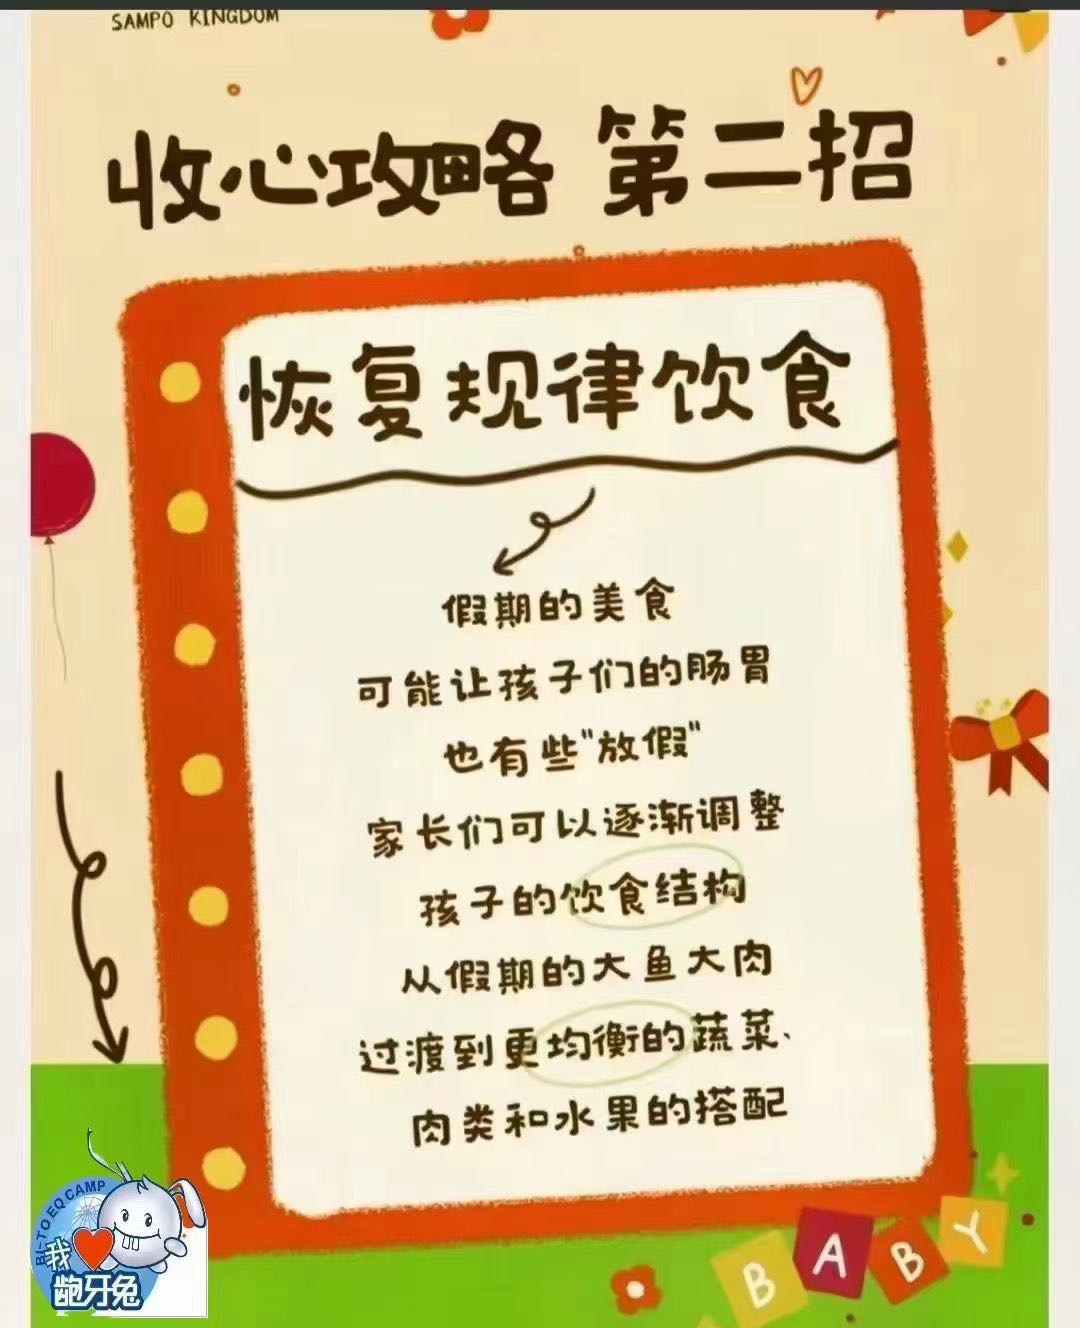 SAMPO KINGDOM
收心攻略 第二招
恢复规律饮食
假期的美食
可能让孩子们的肠胃
也有些"放假"
家长们可以逐渐调整
孩子的饮食结构
从假期的大鱼大肉
过渡到更均衡的蔬菜、
肉类和水果的搭配
BI-TO EQ CAMP
我
龅牙兔
BABY